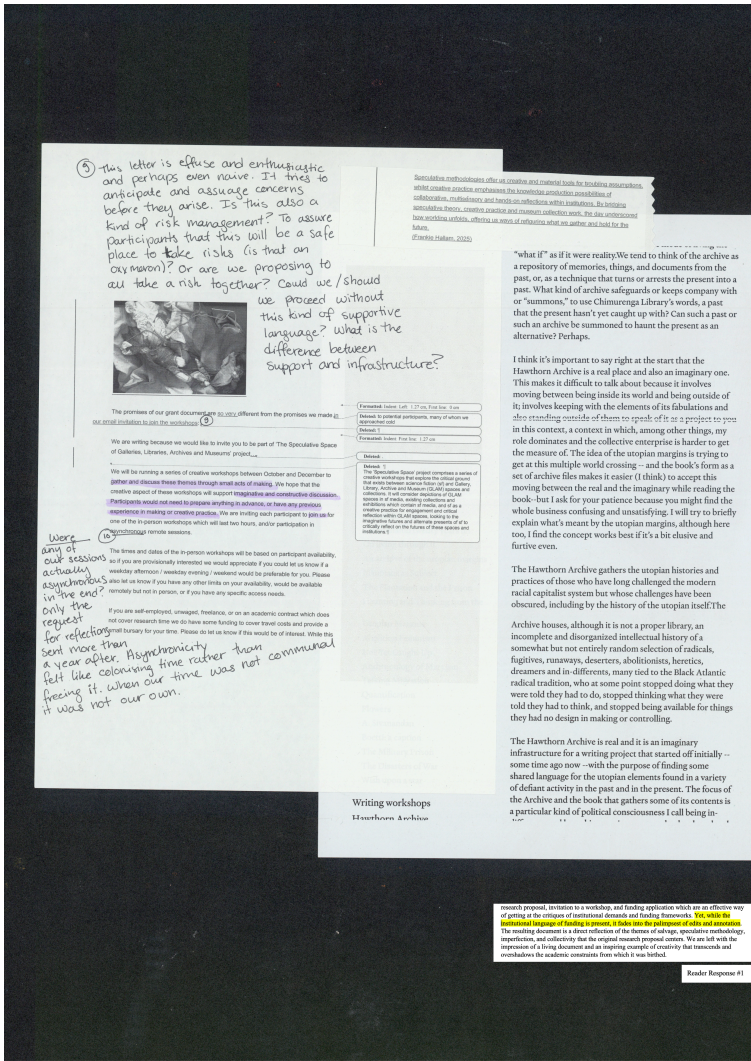 9 This letter is effuse and enthusiastic
and perhaps even naive. It tries to
anticipate and assuage concerns
before they arise. Is this also a
kind of risk management? To assure
participants that this will be a safe
place to take risks (is that an
oxymoron)? Or are we proposing to
all take a risk together? Could we/should
we proceed without
this kind of supportive
language? What is the
difference between
support and infrastructure?
The promises of our grant document are so very different from the promises we made in
our email invitation to join the workshops 9
We are writing because we would like to invite you to be part of 'The Speculative Space
of Galleries, Libraries, Archives and Museums' project.
We will be running a series of creative workshops between October and December to
gather and discuss these themes through small acts of making. We hope that the
creative aspect of these workshops will support imaginative and constructive discussion.
Participants would not need to prepare anything in advance, or have any previous
experience in making or creative practice. We are inviting each participant to join us for
one of the in-person workshops which will last two hours, and/or participation in
asynchronous remote sessions.
The times and dates of the in-person workshops will be based on participant availability,
so if you are provisionally interested we would appreciate if you could let us know if a
weekday afternoon / weekday evening / weekend would be preferable for you. Please
also let us know if you have any other limits on your availability, would be available
remotely but not in person, or if you have any specific access needs.
If you are self-employed, unwaged, freelance, or on an academic contract which does
not cover research time we do have some funding to cover travel costs and provide a
small bursary for your time. Please do let us know if this would be of interest. While this
Were 10
any of
our sessions
actually
asynchronous
in the end?
only the
request
for reflections
sent more than
a year after. Asynchronicity
felt like colonising time rather than
freeing it. When our time was not communal
it was not our own.
Formatted: Indent: Left: 1.27 cm, First line: 0 cm
Deleted: to potential participants, many of whom we
approached cold
Deleted: ¶
Formatted: Indent: First line: 1.27 cm
Deleted:
Deleted: ¶
The 'Speculative Space' project comprises a series of
creative workshops that explore the critical ground
that exists between science-fiction (sf) and Gallery,
Library, Archive and Museum (GLAM) spaces and
collections. It will consider depictions of GLAM
spaces in sf media, existing collections and
exhibitions which contain sf media, and sf as a
creative practice for engagement and critical
reflection within GLAM spaces, looking to the
imaginative futures and alternate presents of sf to
critically reflect on the futures of these spaces and
institutions.¶
Speculative methodologies offer us creative and material tools for troubling assumptions,
whilst creative practice emphasises the knowledge production possibilities of
collaborative, multisensory and hands-on reflections within institutions. By bridging
speculative theory, creative practice and museum collection work, the day underscored
how worlding unfolds, offering us ways of refiguring what we gather and hold for the
future.
(Frankie Hallam, 2025)
"what if" as if it were reality.We tend to think of the archive as
a repository of memories, things, and documents from the
past, or, as a technique that turns or arrests the present into a
past. What kind of archive safeguards or keeps company with
or "summons," to use Chimurenga Library's words, a past
that the present hasn't yet caught up with? Can such a past or
such an archive be summoned to haunt the present as an
alternative? Perhaps.
I think it's important to say right at the start that the
Hawthorn Archive is a real place and also an imaginary one.
This makes it difficult to talk about because it involves
moving between being inside its world and being outside of
it; involves keeping with the elements of its fabulations and
also standing outside of them to speak of it as a project to you
in this context, a context in which, among other things, my
role dominates and the collective enterprise is harder to get
the measure of. The idea of the utopian margins is trying to
get at this multiple world crossing -- and the book's form as a
set of archive files makes it easier (I think) to accept this
moving between the real and the imaginary while reading the
book--but I ask for your patience because you might find the
whole business confusing and unsatisfying. I will try to briefly
explain what's meant by the utopian margins, although here
too, I find the concept works best if it's a bit elusive and
furtive even.
The Hawthorn Archive gathers the utopian histories and
practices of those who have long challenged the modern
racial capitalist system but whose challenges have been
obscured, including by the history of the utopian itself.The
Archive houses, although it is not a proper library, an
incomplete and disorganized intellectual history of a
somewhat but not entirely random selection of radicals,
fugitives, runaways, deserters, abolitionists, heretics,
dreamers and in-differents, many tied to the Black Atlantic
radical tradition, who at some point stopped doing what they
were told they had to do, stopped thinking what they were
told they had to think, and stopped being available for things
they had no design in making or controlling.
The Hawthorn Archive is real and it is an imaginary
infrastructure for a writing project that started off initially --
some time ago now --with the purpose of finding some
shared language for the utopian elements found in a variety
of defiant activity in the past and in the present. The focus of
the Archive and the book that gathers some of its contents is
a particular kind of political consciousness I call being in-
Writing workshops
Hawthorn Archive
research proposal, invitation to a workshop, and funding application which are an effective way
of getting at the critiques of institutional demands and funding frameworks. Yet, while the
institutional language of funding is present, it fades into the palimpsest of edits and annotation.
The resulting document is a direct reflection of the themes of salvage, speculative methodology,
imperfection, and collectivity that the original research proposal centers. We are left with the
impression of a living document and an inspiring example of creativity that transcends and
overshadows the academic constraints from which it was birthed.
Reader Response #1